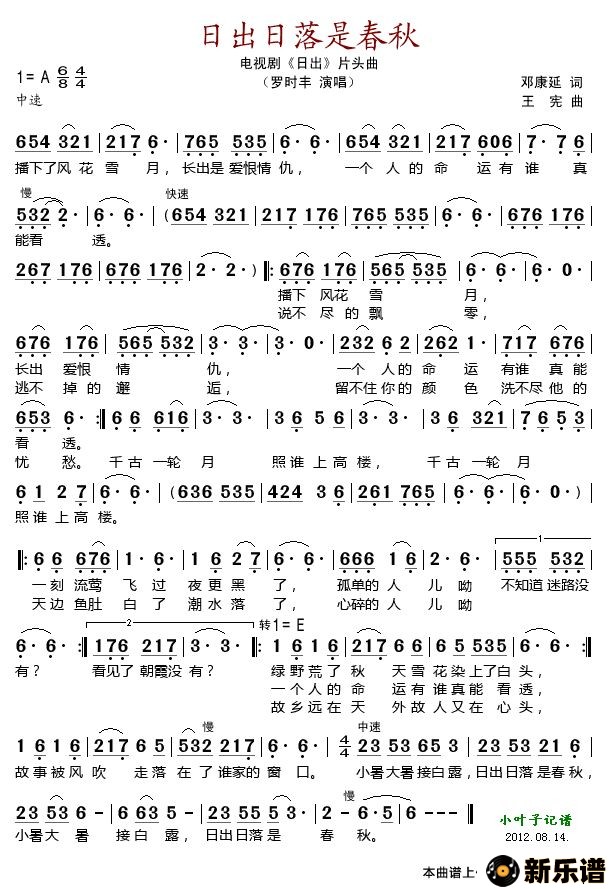 日出日落是春秋
电视剧《日出》片头曲
（罗时丰 演唱）
1= A 6/8 4/4
中速
邓康延 词
王 宪 曲
654 321 | 217 6· | 765 535 | 6· 6· | 654 321 | 217 606 | 7· 126 |
播下了风 花 雪 月，长出是 爱恨情 仇， 一个 人 的 命 运有 谁 真
慢 快速
532 2· | 6· 6· | (654 321 | 217 176 | 765 535 | 6· 6· | 676 176 |
能看 透。
267 176 | 676 176 | 2· 2· ) ‖: 676 176 | 565 535 | 6· 6· | 6· 0· |
播下 风花 雪 月，
说不 尽的 飘 零，
676 176 | 565 532 | 6· 6· | 6· 0· | 676 176 | 2· 12 | 717 676 |
长出 爱恨 情 仇， 一个 人的 命 运 有谁 真能
逃不 掉的 邂 逅， 留不住你的 颜 色 洗不尽他的
653 6· :‖ 6· 616 | 3· 3· | 36 56 | 3· 3· | 36 321 | 76 53 |
看 透。
忧 愁。 千古 一轮 月 照谁 上高 楼， 千古 一轮月
61 27 | 6· 6· | (636 535 | 424 36 | 261 765 | 6· 6· | 6· 6· ) |
照谁 上高 楼。
‖: 66 676 | 3· 3· | 16 27 | 6· 6· | 666 16 | 2· 6· | 555 532 |
一刻 流莺 飞 过 夜更 黑 了， 孤单的 人 儿 呦 不知道 迷路没
天边 鱼肚 白 了 潮水 落 了， 心碎的 人 儿 呦
6· 6· :‖ 176 217 | 3· 3· :‖ 转1= E ‖: 16 16 | 217 6· | 66 535 | 6· 6· |
有？ 看见了 朝霞没 有？ 绿野 荒了 秋 天 雪花 染上了 白 头，
一个 人的 命 运有 谁真能 看 透，
故乡 远在 天 外 故人 又在 心 头，
慢 中速
16 16 | 217 65 | 532 217 | 6· 6· | 4/4 23 553 | 23 53 2- |
故事 被风 吹 走落 在 了 谁家的 窗 口。 小暑大暑 接白露，日出日落 是春 秋，
慢
23 53 | 6- 66 | 663 5- | 23 53 2 | 6- - - ‖
小暑 大暑 接 白露， 日出日落 是 春 秋。
小叶子记谱
2012.08.14.
本曲谱上· 新乐谱